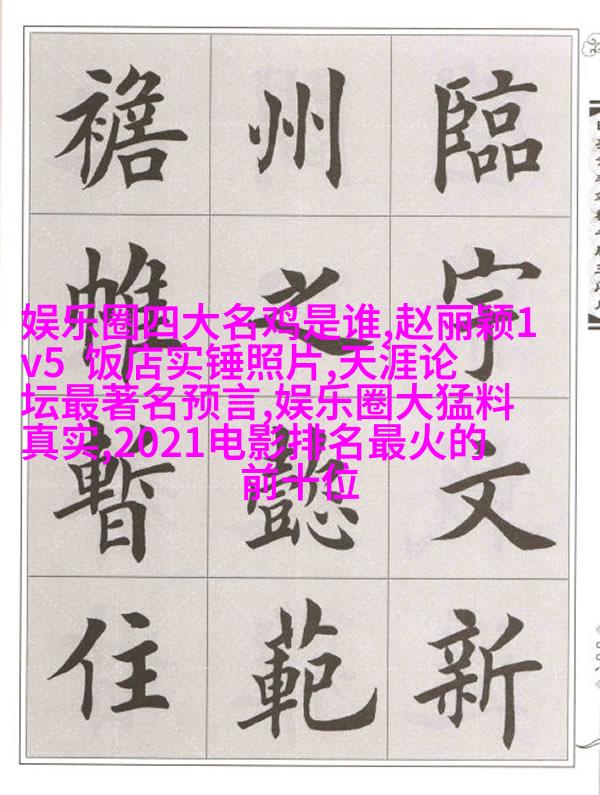 臨宇文新
州之懿範
襜帷暫住
娱乐圈四大名鸡是谁,赵丽颖1
v5 饭店实锤照片,天涯论
坛最著名预言,娱乐圈大猛料
真实,2021电影排名最火的
前十位